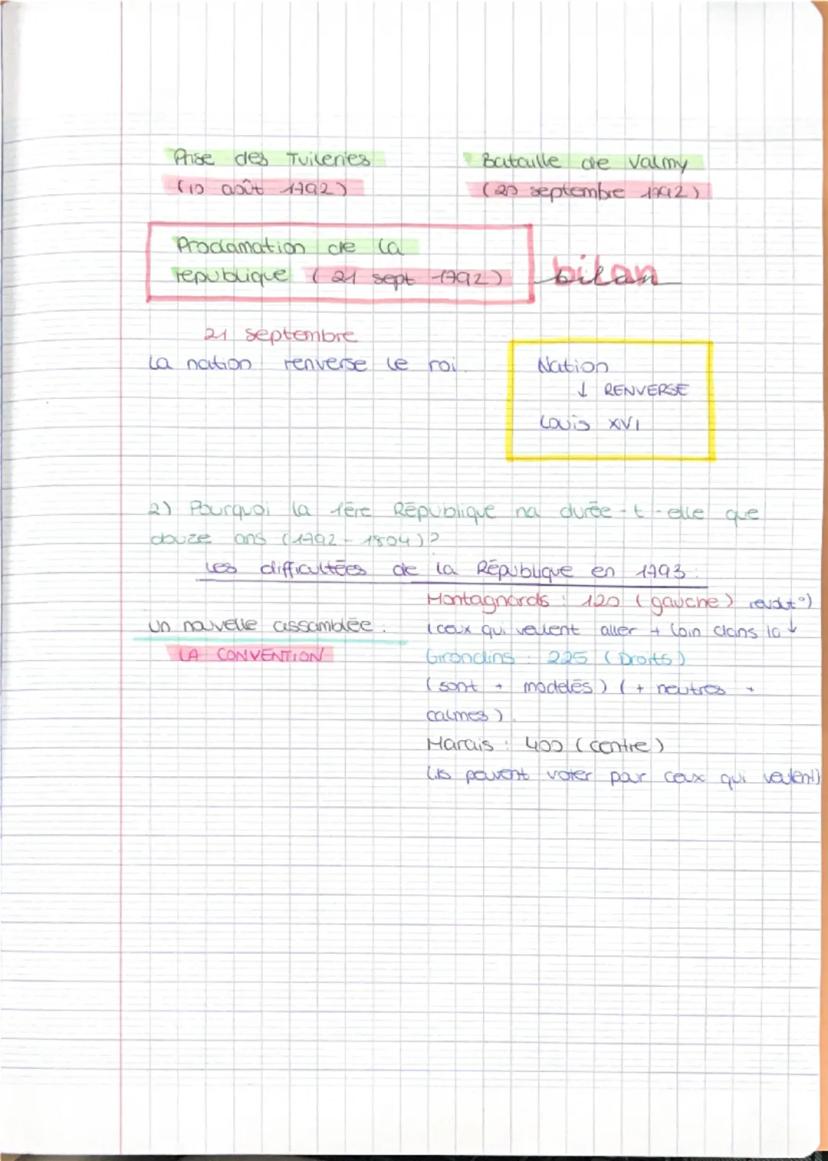 Prise des Tuileries
(10 août 1792)
Bataille de Valmy
(20 septembre 1792)
Proclamation de la
republique (21 sept 1792)
bilan
21 septembre
La nation renverse le roi.
Nation
↓ RENVERSE
Louis XVI
2) Pourquoi la 1ère République na durée-t-elle que
douze ans (1792-1804)?
Les difficultées de la République en 1793.
Un nouvelle assamblée :
LA CONVENTION
Montagnards : 120 (gauche) revolut°)
(ceux qui veulent aller + loin dans la ↓
Girondins : 225 (Droits)
(sont + modelés) (+ neutres +
calmes).
Marais : 400 (centre)
(ils peuvent voter par ceux qui veulent)